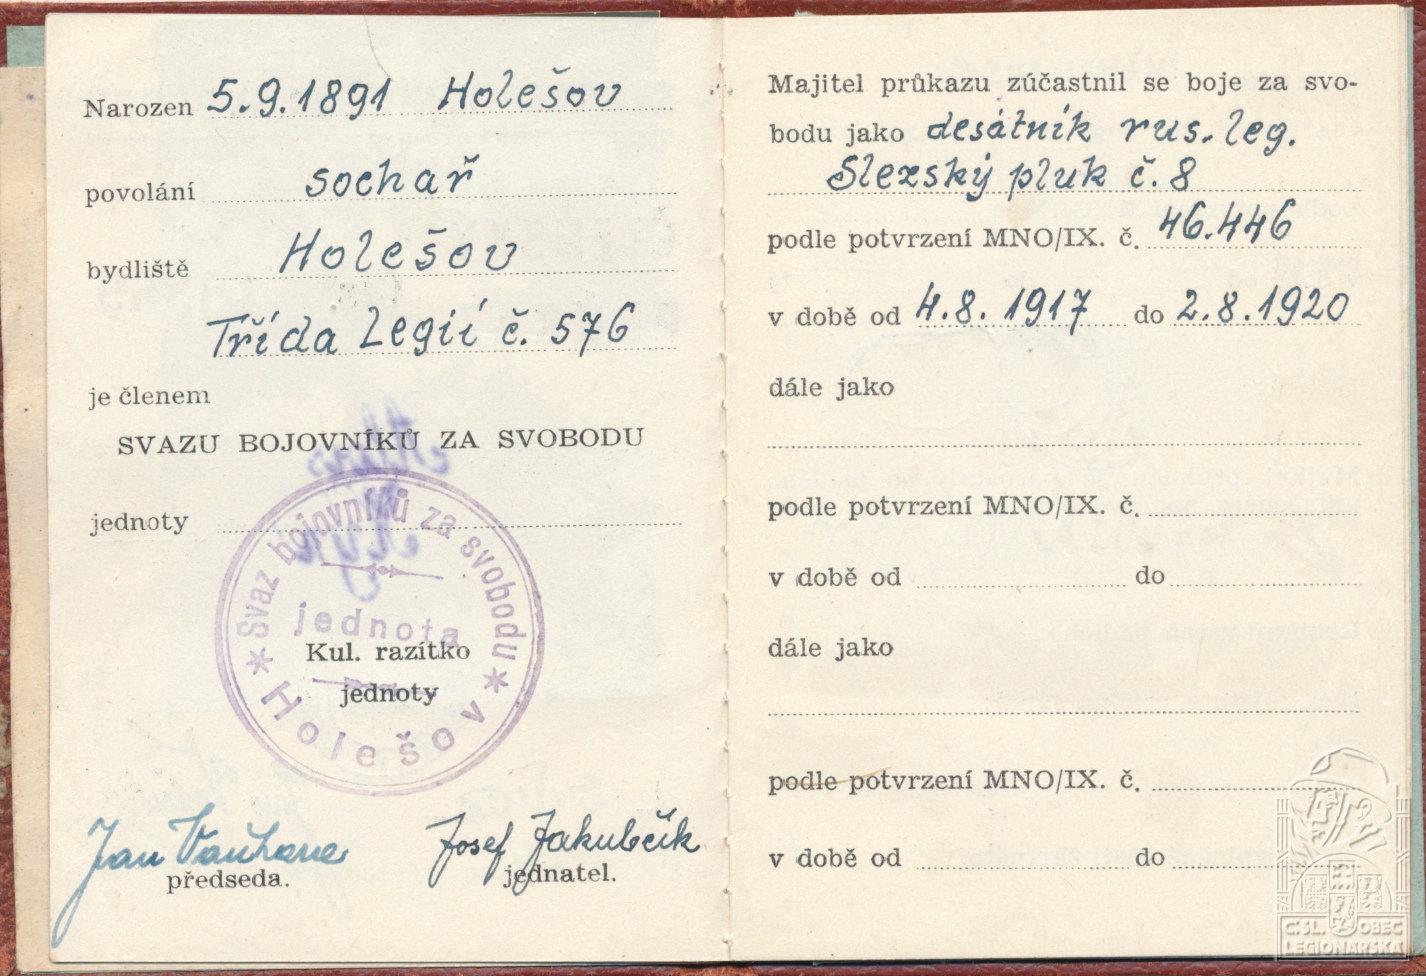 Narozen 5.9.1891 Holešov
povolání sochař
bydliště Holešov
Třída Legií č. 576
je členem
SVAZU BOJOVNÍKŮ ZA SVOBODU
jednoty
Svaz bojovníků za svobodu
jednota
Kul. razítko
jednoty
* Holešov *
Jan
předseda.
Josef Jakubčík
jednatel.
Majitel průkazu zúčastnil se boje za svo-
bodu jako desátník rus. leg.
Slezský pluk č. 8
podle potvrzení MNO/IX. č. 46.446
v době od 4.8. 1917 do 2.8.1920
dále jako
podle potvrzení MNO/IX. č.
v době od do
dále jako
podle potvrzení MNO/IX. č.
v době od do
ČSL. OBEC
LEGIONÁŘSKÁ